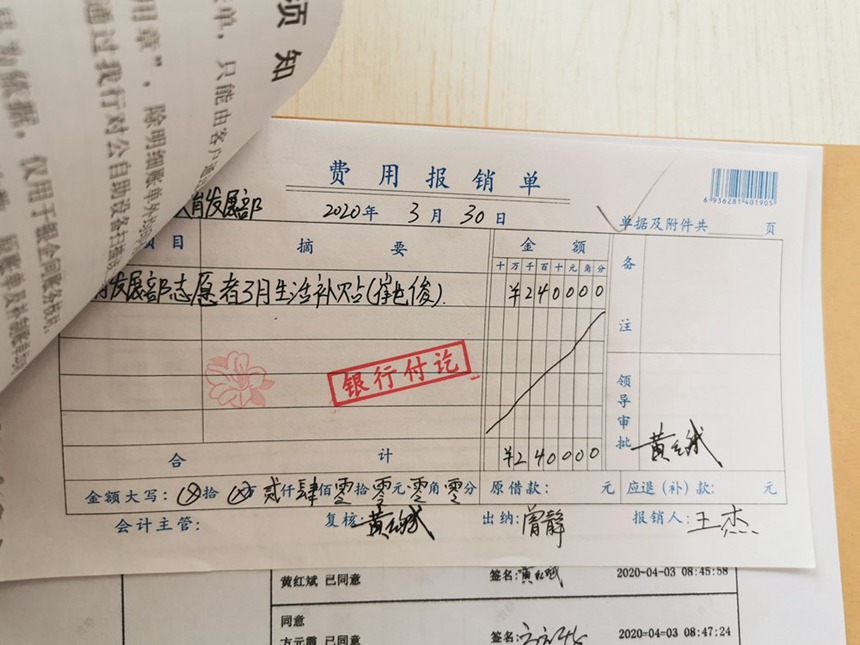 须知
单，只能由客户通
用章”，除明细账单外均
通过我行对公自助设备扫描
具为纸据，仅用于
费用报销单
6936281401905
育发展部
2020年 3月 30日
单据及附件共 页
项目 摘要 金额 备注
十万千百十元角分
发展部志愿者3月生活补贴(崔 俊)
¥240000
银行付讫
领导审批
黄红斌
合计
¥240000
金额大写: ⊗拾 ⊗万 贰仟 肆佰 零拾 零元 零角 零分 原借款: 元 应退(补)款: 元
会计主管: 复核: 黄红斌 出纳: 曾静 报销人: 王杰
黄红斌 已同意 签名: 黄红斌 2020-04-03 08:45:58
同意
方元霞 已同意 签名: 2020-04-03 08:47:24